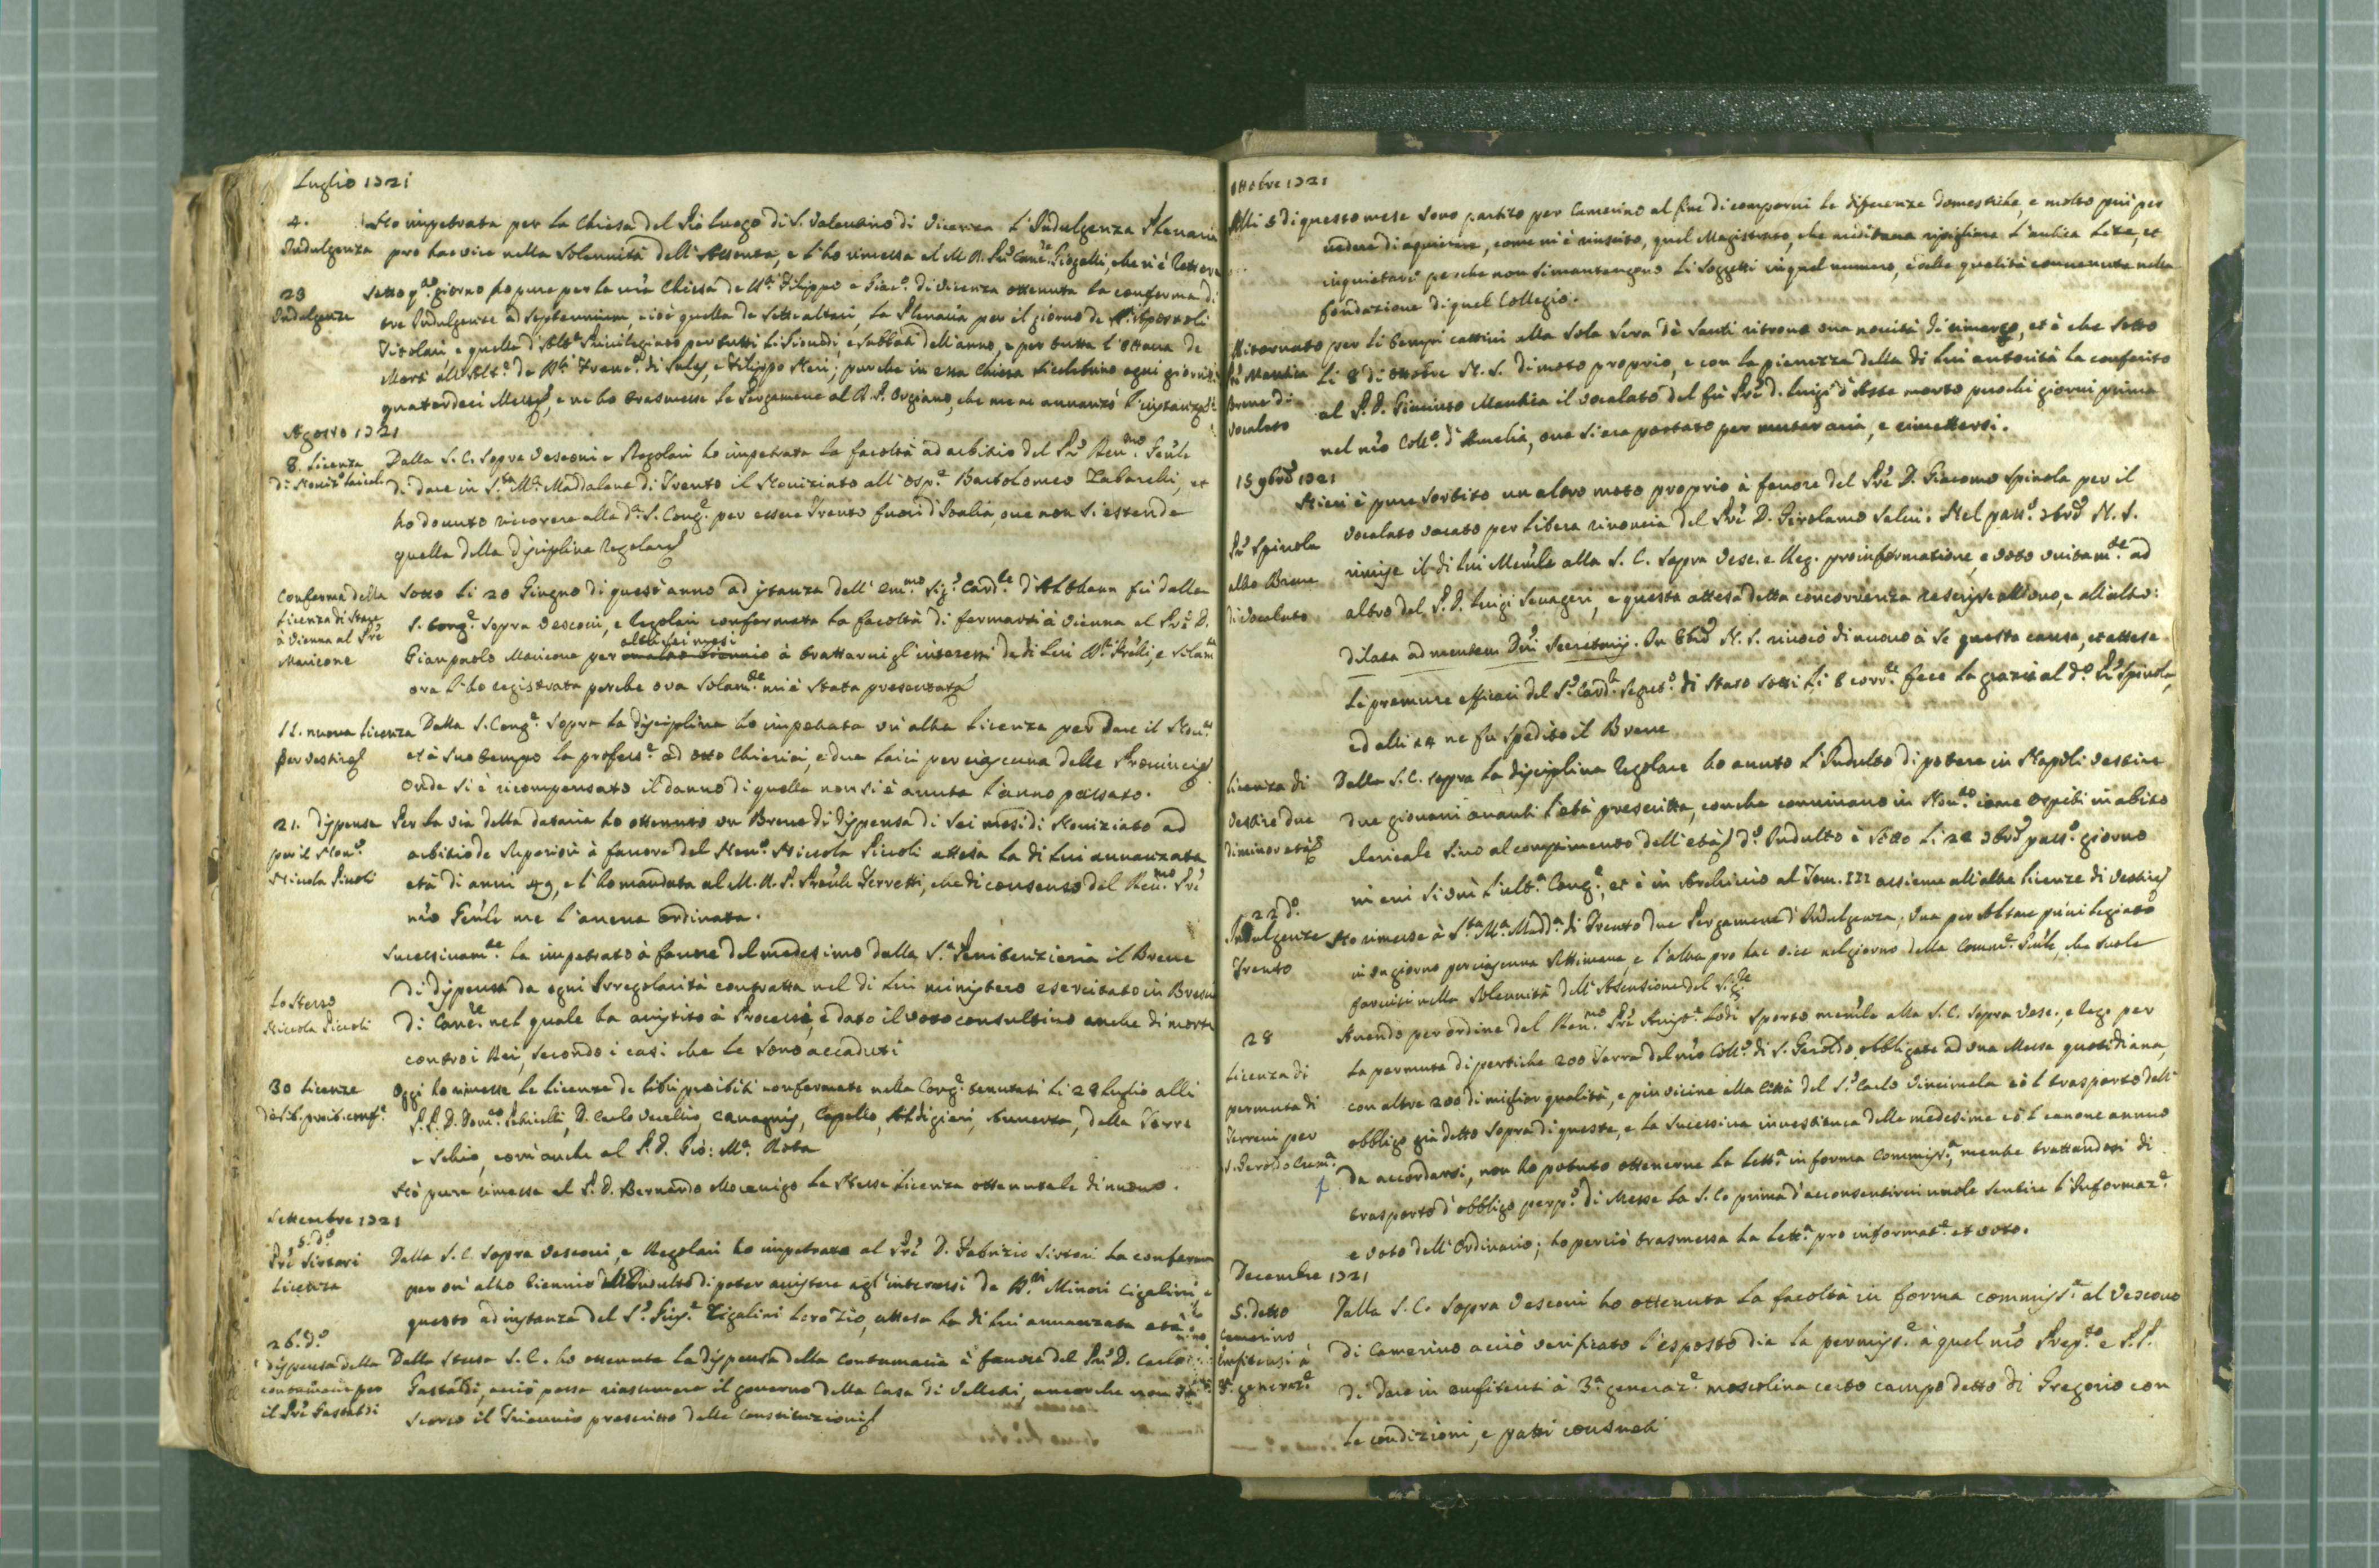 Luglio 1721
4.
Indulgenza
Ho impetrata per la Chiesa del Pio luogo di S. Valentino di Vicenza l'Indulgenza Plenaria
pro hac vice nella Solennità dell'Assunta, e l'ho rimessa al M. R. Prē Canc.re
23
Indulgenze
Sotto q.to giorno ho pure per la nr̄a Chiesa de SS.ti Filippo e Giac.o di Vicenza ottenuta la conferma di
tre Indulgenze ad septennium, cioè quella de Sette altari, la Plenaria per il giorno de SS.ti Apostoli
Titolari e quella d'Alt.e Privilegiato per tutti li Lunedì, e Sabbati dell'anno, e per tutta l'Ottava de
Morti all'Alt.e de SS.ti Franc.o di Sales, e Filippo Neri; purche in essa Chiesa si celebrino ogni giorno
quatordeci Messe, e ne ho trasmesse le Pergamene al R. P. Orgiano, che me ne avanzò l'instanza
Agosto 1721
8. Licenza
di Noviz.o laicali
Dalla S. C. sopra Vescovi e Regolari ho impetrata la facoltà ad arbitrio del Prē Rev.mo Gen̄le
di dare in S.ta M.a Maddalena di Trento il Noviziato all'Osp.e Bartolomeo Zabarelli, et
ho dovuto ricorrere alla d.a S. Cong.e per essere Trento fuori d'Italia, ove non si estende
quella della disciplina Regolare
Conferma della
Licenza di stare
à Vienna al Prē
Mavicone
Sotto li 20 Giugno di quest'anno ad istanza dell'Em.mo Sig.r Card.le d'Althann fù dalla
S. Cong.e sopra Vescovi, e Regolari confermata la facoltà di fermarsi à Vienna al Prē D.
Gianpaolo Mavicone per altri sei mesi à trattarvi gl'interessi de di lui SS.ri Frēlli, e solam.te
ora l'ho registrata perche ora solam.te mi è stata presentata
11. nuova licenza
per vestire
Dalla S. Cong.e sopra la disciplina ho impetrata un'altra licenza per dare il Nov.to
et à suo tempo la profess.e ad otto Chierici, e due laici per ciascuna delle Provincie
onde si è ricompensato il danno di quella non si è avuta l'anno passato.
21. dispensa
per il Nov.o
Nicola Piccoli
Per la via della dataria ho ottenuto un Breve di dispensa di sei mesi di Noviziato ad
arbitrio de Superiori à favore del Nov.o Niccola Piccoli attesa la di lui avvanzata
età di anni 49, e l'ho mandata al M. R. P. Prov̄le Ferretti, che di consenso del Rev.mo Prē
nr̄o Gen̄le me l'aveva ordinata.
Lo stesso
Niccola Piccoli
Successivam.te ho impetrato à favore del medesimo dalla S.a Penitenzieria il Breve
di dispensa da ogni Irregolarità contratta nel di lui ministero esercitato in
di Canc.re nel quale ha assistito à Processi, e dato il voto consultivo anche di morte
contro i Rei, secondo i casi che le sono accaduti
30 licenze
de lib. proib. conf.e
Oggi ho rimesse le licenze de libri proibiti confermate nella Cong.e tenutasi li 28 luglio alli
P. P. D. Dom.co D. Carlo Vecellio, Capello, Aldigieri, della Torre
e Schio, com'anche al P. D. Gio: M.a Rota
Hò pure rimessa al P. D. Bernardo Mocenigo la stessa licenza ottenutale di nuovo.
Settembre 1721
5. d.o
Prē Sirtori
licenza
Dalla S. C. sopra Vescovi, e Regolari ho impetrata al Prē D. Fabrizio Sirtori la conferma
per un'altro biennio dell'Indulto di poter assistere agl'interessi de SS.ri Minori Cigalini e
questo ad instanza del S.r Gius.e Zigalini loro Zio, attesa la di lui avvanzata età
26. d.o
dispensa della
contumacia per
il Prē Gastaldi
Dalla stessa S. C. ho ottenuta la dispensa della contumacia à favore del Prē D. Carlo
Gastaldi, acciò possa riassumere il governo della Casa di Velletri, ancorche non sia
scorso il Triennio prescritto dalle Constituzioni
Ottobre 1721
Alli 5 di questo mese sono partito per Camerino al fine di comporvi le differenze domestiche, e molto più per
vedere di aquietare, come mi è riuscito, quel Magistrato, che meditava ripigliare l'antica Lite, et
inquietarci perche non si mantengono li soggetti in quel numero, e della qualità convenuta nella
fondazione di quel Collegio.
Prē Mantica
Breve di
vocalato
Ritornato per li tempi cattivi alla sola sera de Santi ritrovo una novità di rimarco, et è che sotto
li 8 di ottobre N. S. di moto proprio, e con la pienezza della di lui autorità ha conferito
al P. D. Giacinto Mantica il vocalato del fù Prē D. Luigi d'Aste morto puochi giorni prima
nel nr̄o Coll.o d'Amelia, ove si era portato per mutar aria, e rimettersi.
15 9bre 1721
Prē Spinola
altro Breve
di vocalato
Hieri è pure sortito un altro moto proprio à favore del Prē D. Giacomo Spinola per il
vocalato vacato per libera rinoncia del Prē D. Girolamo Salvi. Nel pass.o 7bre N. S.
rimise il di lui Memr̄le alla S. C. sopra Vesc. e Reg. pro informatione, e voto unitam.te ad
altro del P. D. Luigi Savageri, e questa attesa detta concorrenza rescrisse all'uno, e all'altro:
dilata ad mentem Dn̄i Secretarij. In 8bre N. S. rivocò di nuovo à se questa causa, et attese
le premure efficaci del S.r Card.le Segret.o di Stato sotto li 8 corr.te fece la grazia al d.o Prē Spinola,
ed alli 14 ne fu spedito il Breve
licenza di
vestire due
di minor età
Dalla S. C. sopra la disciplina Regolare ho avuto l'Indulto di potere in Napoli vestire
due giovani avanti l'età prescritta, conche convivano in Nov.to come Ospiti in abito
clericale sino al compimento dell'età. d.o Indulto è sotto li 22 7bre pass.o giorno
in cui si unì l'ult.a Cong.e, et è in Archivio al Tom. III assieme all'altre licenze di vestire
22 d.o
Indulgenze
Trento
Ho rimesse à S.ta M.a Madd.a di Trento due Pergamene d'Indulgenza; una per Altare privilegiato
in un giorno per ciascuna settimana, e l'altra pro hac vice nel giorno della Comun.e Gen̄le, che suole
farvisi nella solennità dell'Ascensione del Sig.re
28
Licenza di
permuta di
Terreni per
S. Geroldo Crem.a
Avendo per ordine del Rev.mo Prē Assist.e Lodi sporto memr̄le alla S. C. sopra Vesc., e Reg. per
la permuta di pertiche 200 Terra del nr̄o Coll.o di S. Geroldo obbligate ad una Messa quotidiana,
con altre 200 di miglior qualità, e più vicine alla Città del S.r Carlo Vincimala cō l trasporto dell'
obbligo già detto sopra di queste, e la successiva investitura delle medesime cō l canone annuo
da accordarsi, non ho potuto ottenerne la lett.a in forma Commiss.a, mentre trattandosi di
trasporto d'obbligo perp.o di Messe la S. C. prima d'acconsentirvi vuole sentire l'Informaz.e
e voto dell'Ordinario; ho perciò trasmessa la lett.a pro informat.e et voto.
Decembre 1721
5. detto
Camerino
Enfiteusi à
3.a generaz.e
Dalla S. C. sopra Vescovi ho ottenuta la facoltà in forma commiss.a al Vescovo
di Camerino acciò verificato l'esposto dia la permiss.e à quel nr̄o Prep.to e P. P.
di dare in enfiteusi à 3.a generaz.e mascolina certo campo detto di Gregorio con
le condizioni, e patti consueti